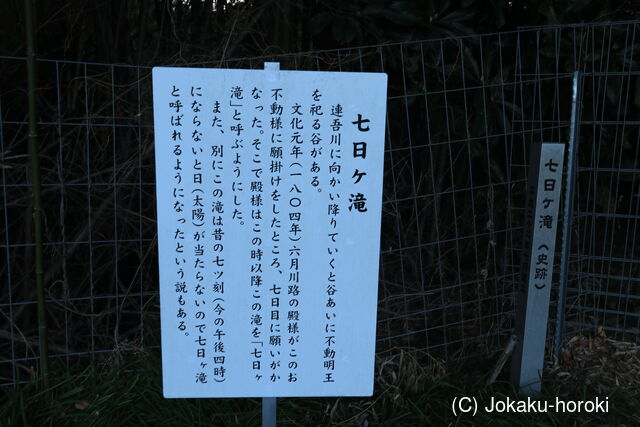 七日ヶ滝
連吾川に向かい降りていくと谷あいに不動明王
を祀る谷がある。
文化元年(一八〇四年)六月川路の殿様がこのお
不動様に願掛けをしたところ、七日目に願いがか
なった。そこで殿様はこの時以降この滝を「七日ヶ
滝」と呼ぶようにした。
また、別にこの滝は昔の七ツ刻(今の午後四時)
にならないと日(太陽)が当たらないので七日ヶ滝
と呼ばれるようになったという説もある。
七日ヶ滝(史跡)
(C) Jokaku-horoki